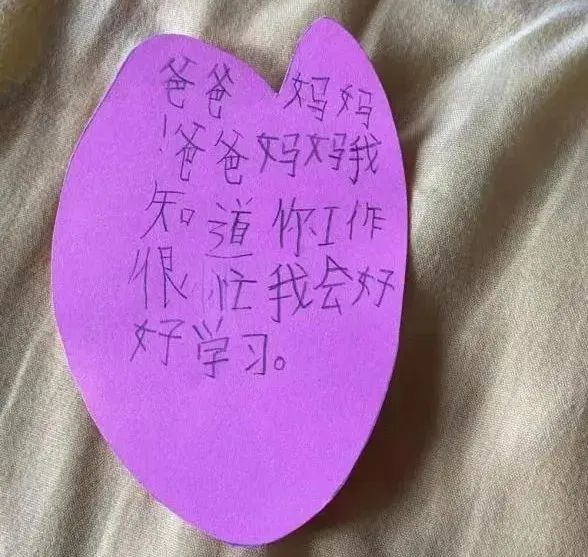 爸爸 妈妈
!爸爸妈妈我
知道你工作
很忙我会好
好学习。